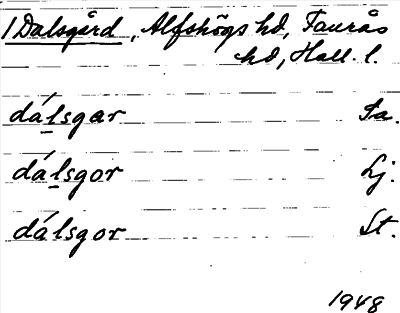 1 Dalsgård, Alfshögs hd, Faurås
hd, Hall. l.
dálsgar Fa.
dálsgor Lj.
dálsgor St.
1948